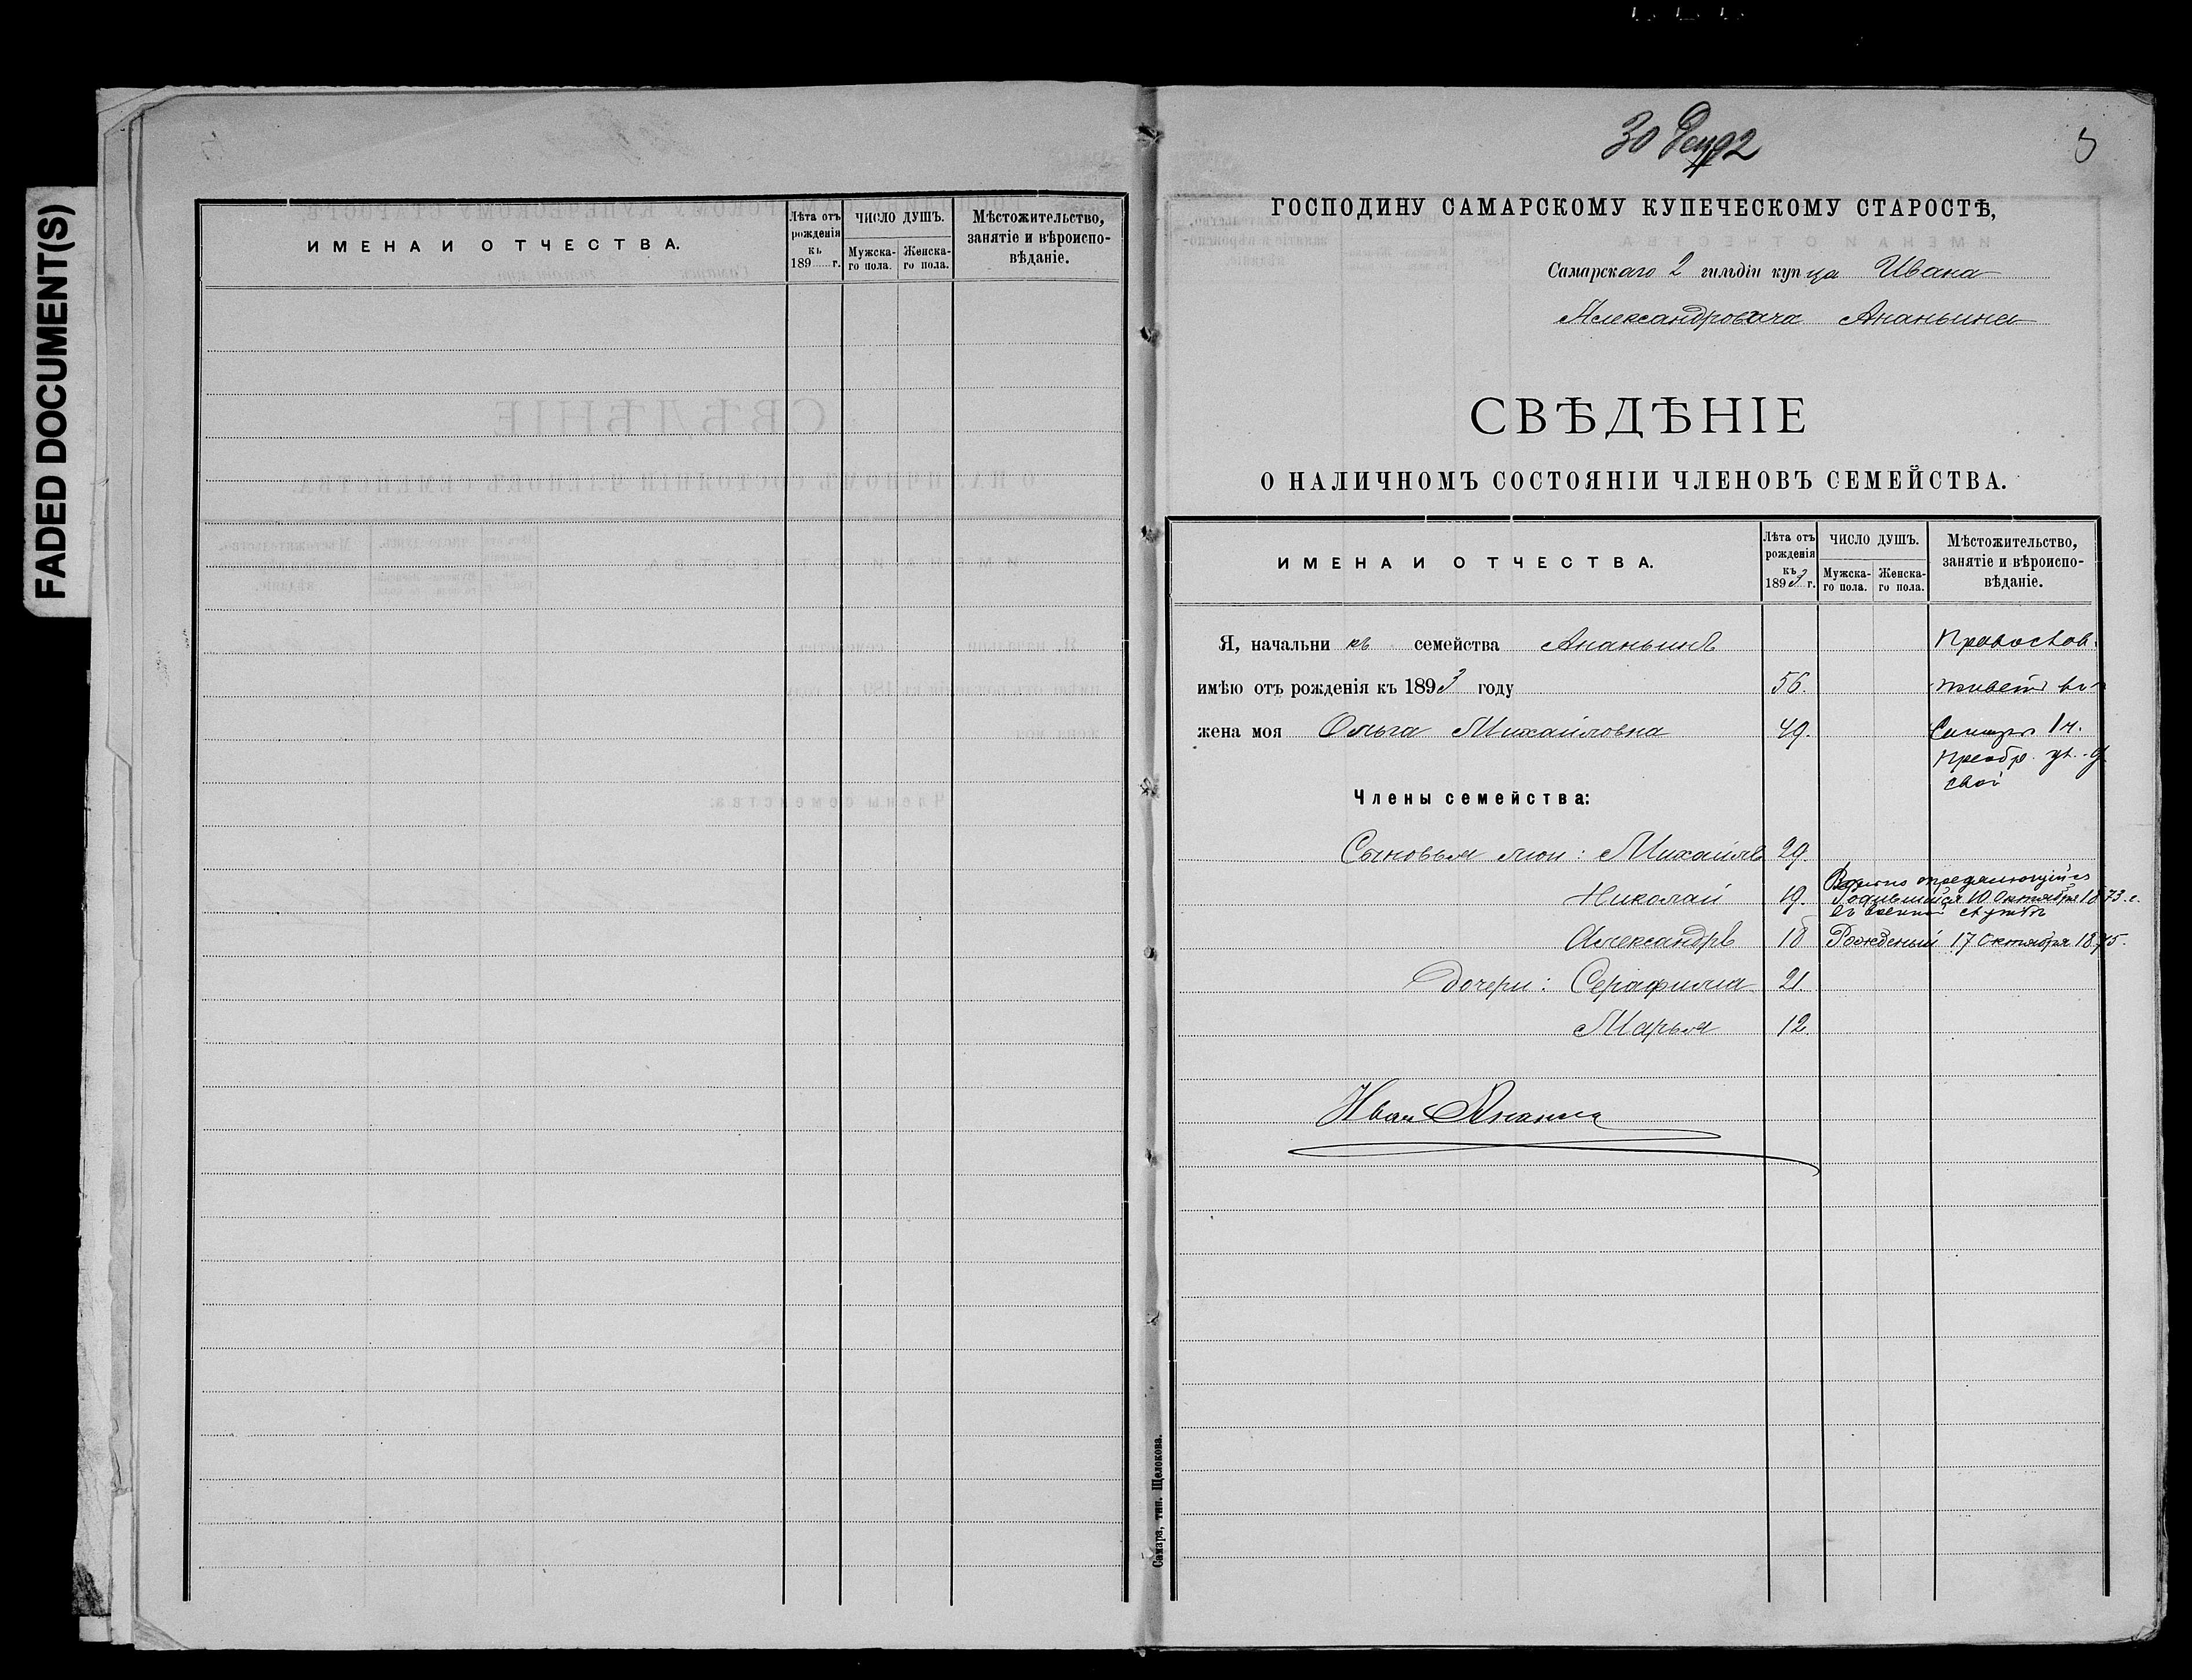 FADED DOCUMENT(S)
ИМЕНА И ОТЧЕСТВА.
Лѣта отъ рожденія къ 189 г.
ЧИСЛО ДУШЪ.
Мужска-го пола.
Женска-го пола.
Мѣстожительство, занятіе и вѣроиспо-вѣданіе.
30 Дек 92
ГОСПОДИНУ САМАРСКОМУ КУПЕЧЕСКОМУ СТАРОСТѢ,
Самарскаго 2 гильдіи купца Ивана
Александровича Ананьина
СВѢДѢНІЕ
О НАЛИЧНОМЪ СОСТОЯНІИ ЧЛЕНОВЪ СЕМЕЙСТВА.
ИМЕНА И ОТЧЕСТВА.
Лѣта отъ рожденія къ 1893 г.
ЧИСЛО ДУШЪ.
Мужска-го пола.
Женска-го пола.
Мѣстожительство, занятіе и вѣроиспо-вѣданіе.
Я, начальникъ семейства Ананьинъ Православ.
имѣю отъ рожденія къ 1893 году 56. живетъ въ
жена моя Ольга Михайловна 49. Самарѣ 1 ч.
Преобр. ул. д.
свой
Члены семейства:
Сыновья мои: Михаилъ 29.
Вольно опредѣляющійся
Николай 19. Родившійся 10 Октября 1873 г.
въ военной службѣ
Александръ 18 Рожденый 17 Октября 1875.
Дочери: Серафима 21.
Марья 12.
Иван Ананьин
Самара, тип. Щелокова.